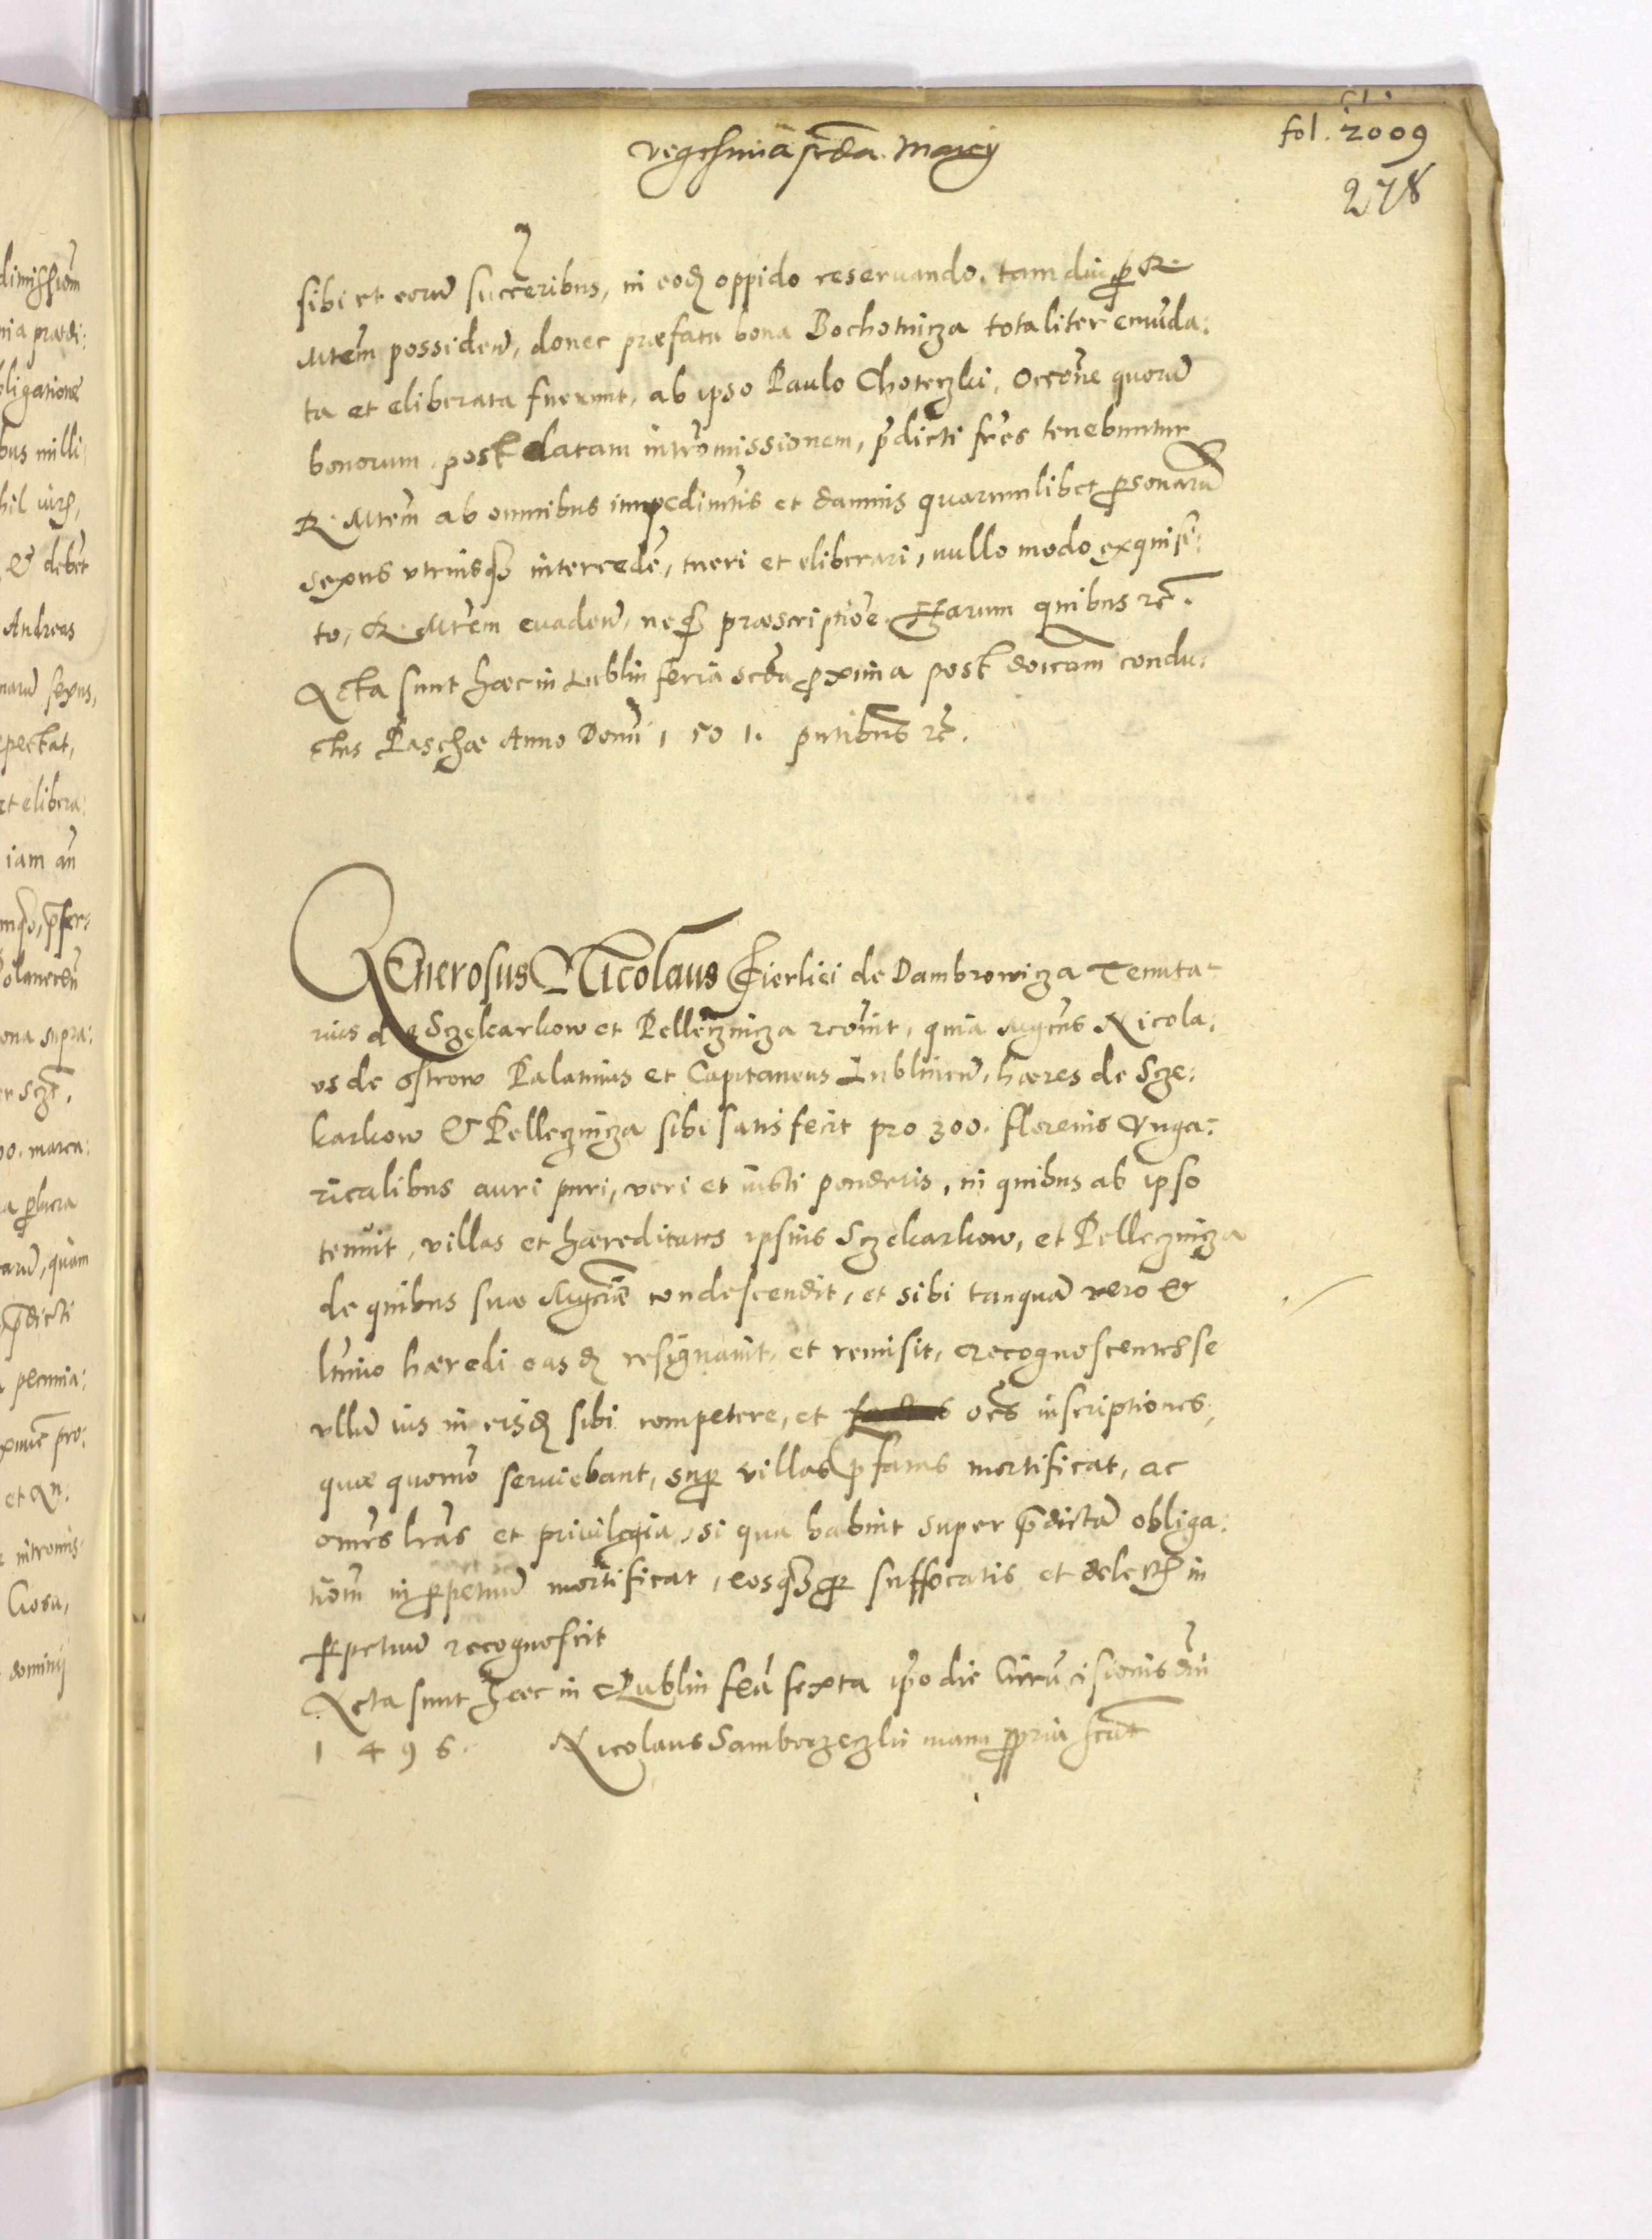 fol. 2009
vegesima scda. Marcij
278
sibi et eorū succeribus, in eodē oppido reseruando. tam diu p R
Mtem possidenđ, donec præfata bona Bochotnicza totaliter emūda:
ta et eliberata fuerint, ab ipso Paulo Choteczki, Occōne quorū
bonorum post datam intromissionem, pdicti frēs tenebuntur
R. Mtēm ab omnibus impedimtis et damnis quarumlibet psonarū
sexus vtriusq3 interceden, tueri et eliberari, nullo modo exquisi:
to, R. Mtēm euadenđ, neq3 præscriptiōe. Harum quibus rc.
Acta sunt hæc in Lublin feria scda proxima post doīcam condu:
ctus Paschæ Anno Domī 1501. pntibus rc.
GEnerosus Nicolaus Fierliei de Dambrowicza Tenuta-
rius de Sczekarkow et Pellecznicza rcouit, quia Mgcus Nicola:
vs de Ostrow Palatinus et Capitaneus Lublinen, hæres de Scze:
karkow & Pellecznicza sibi satisfecit pro 300. florenis Vnga:
ricalibus auri puri, veri et iusti ponderis, in quibus ab ipso
tenuit, villas et hæreditates ipsius Sczekarkow, et Pellecznicza
de quibus suæ Mgciæ condescendit, et sibi tanquā vero &
ltimo hæredi easđ resignauit, et remisit, recognoscentes se
vllū ius in eisđ sibi competere, et oēs inscriptiones,
quæ quomō seruiebant, sup villas pfatas mortificat, ac
omēs lras et priuilegia, si qua habuit super pdictā obliga:
tiōm in ppetuū mortificat, eosq3 pro suffocatis et deletis in
ppetuū recognoscit
Acta sunt hæc in Lublin feria sexta ipo die Circūcisionis dni
1496. Nicolaus Samborzeczki manu ppria scrt